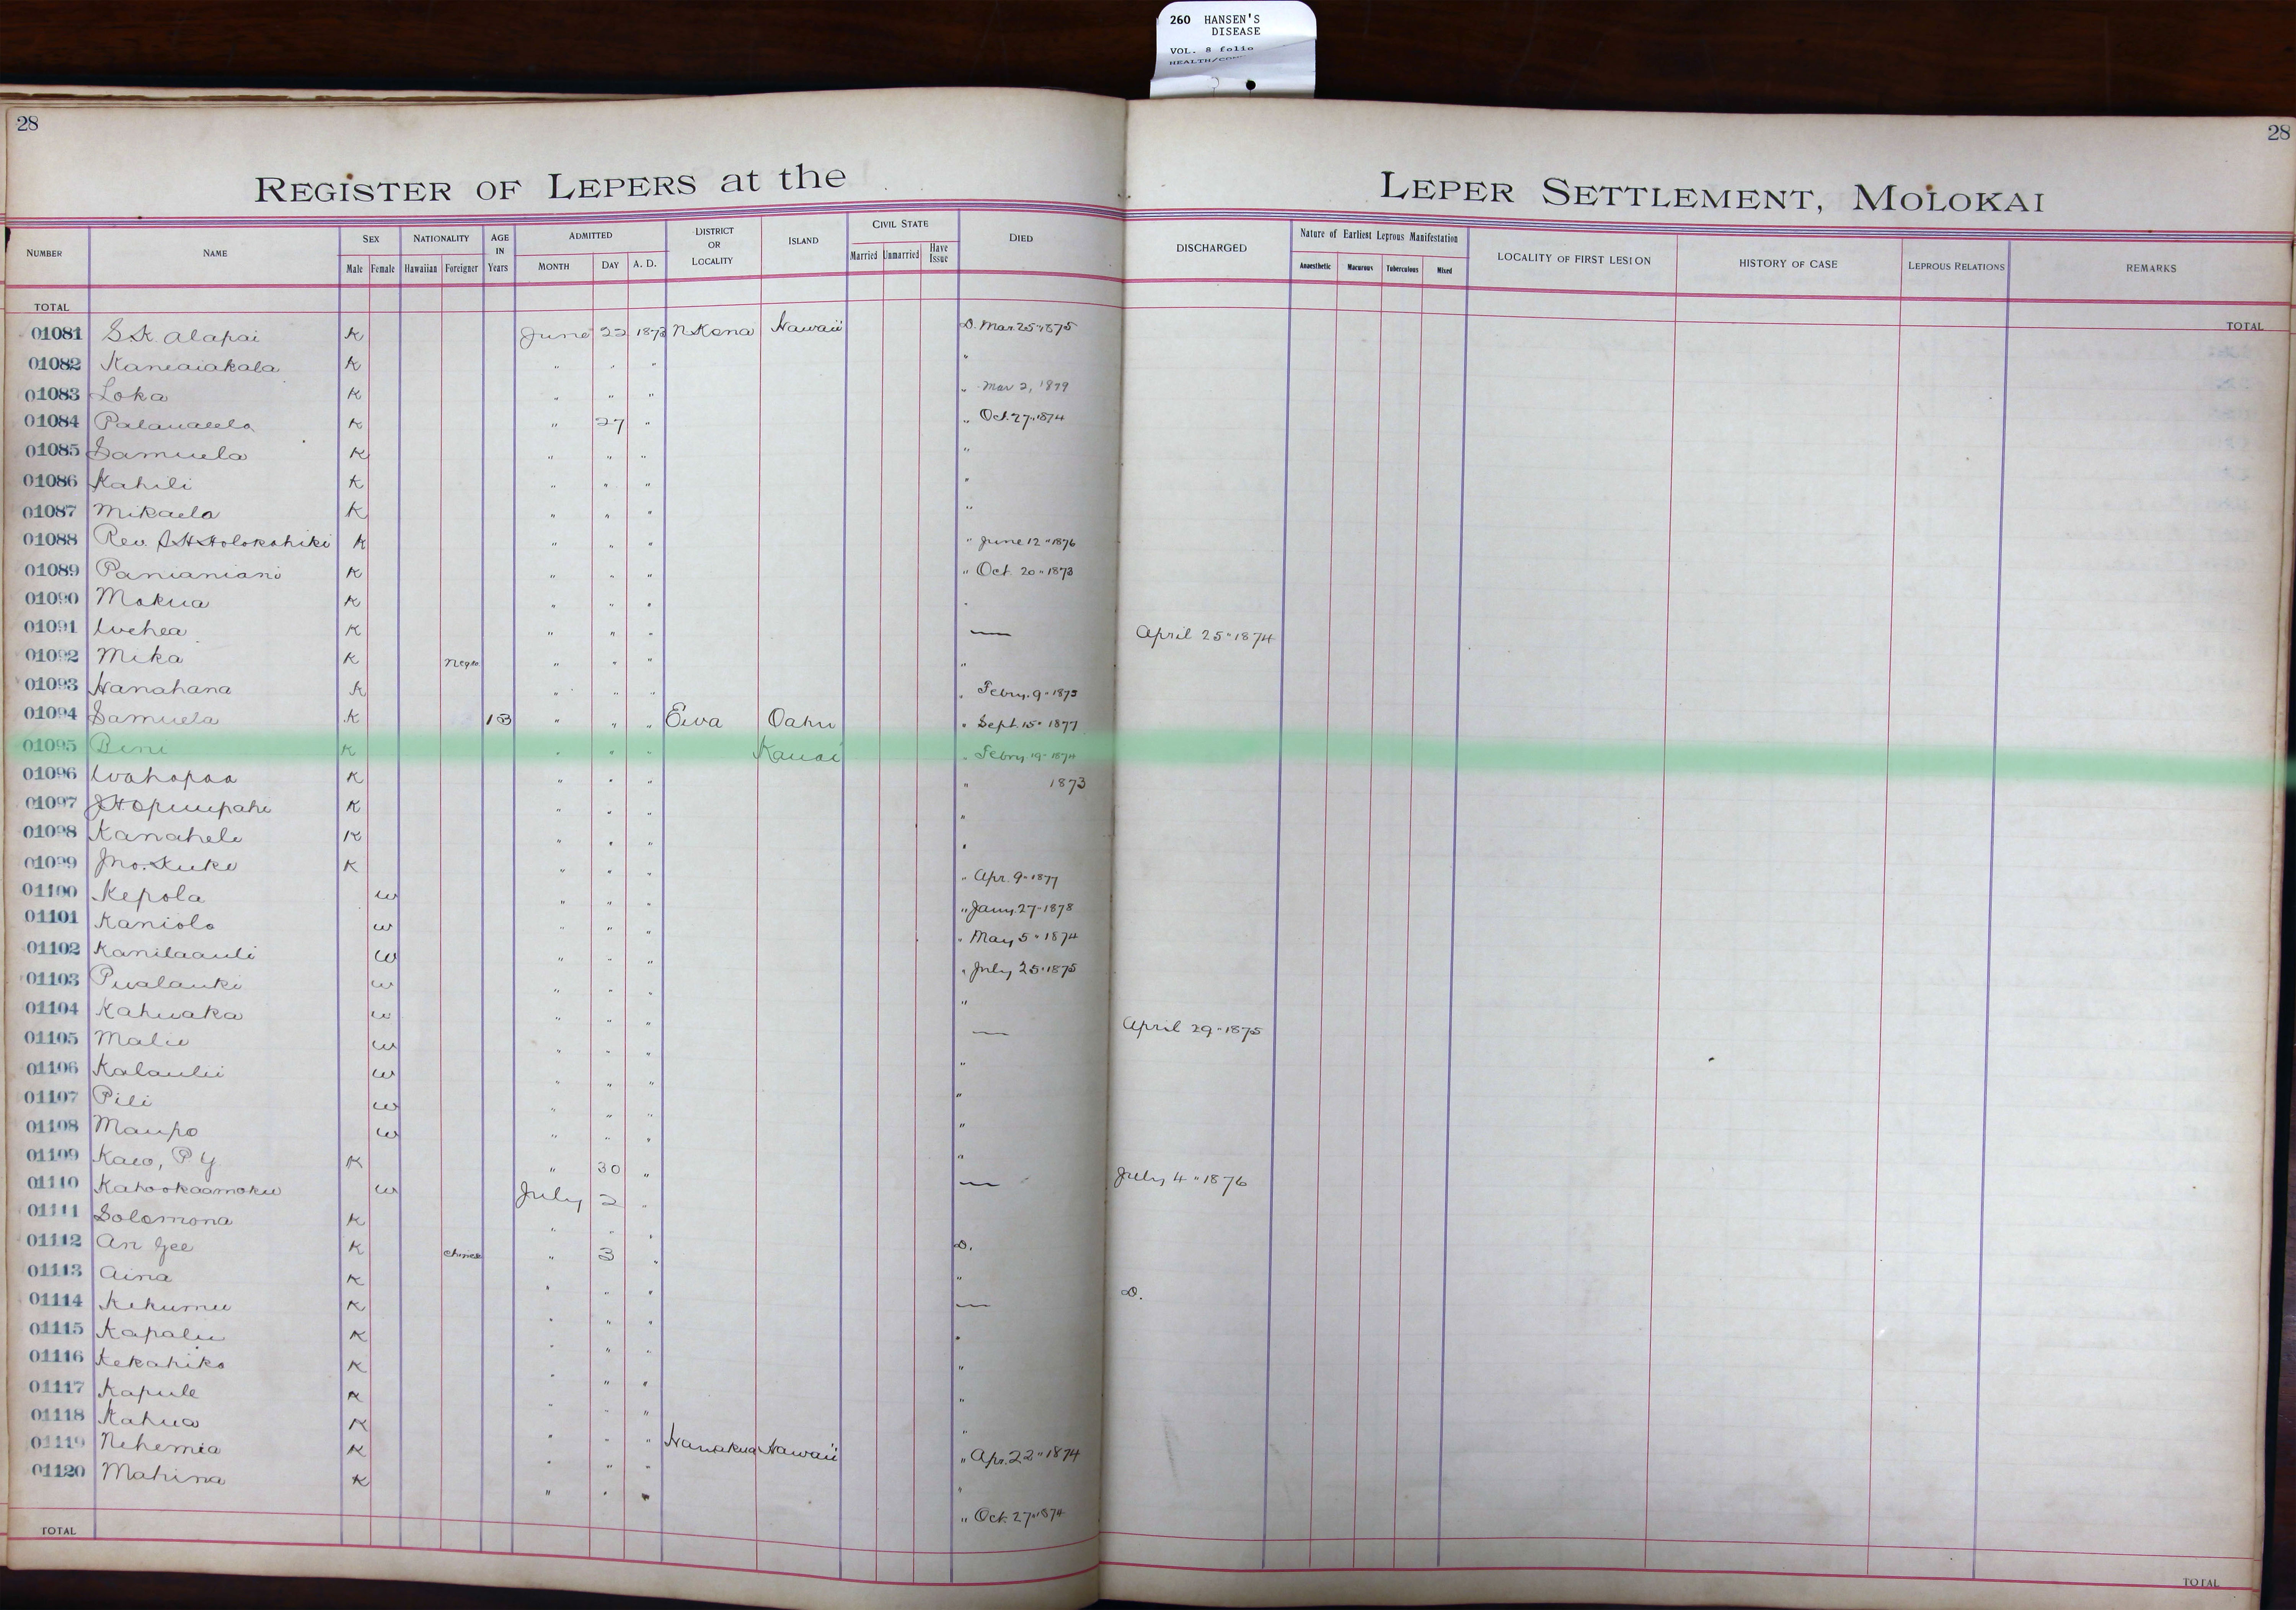 260 HANSEN'S
DISEASE
VOL. 8 folio
28 28
REGISTER OF LEPERS at the LEPER SETTLEMENT, MOLOKAI
NUMBER NAME SEX Male Female NATIONALITY Hawaiian Foreigner AGE IN Years ADMITTED MONTH DAY A. D. DISTRICT OR LOCALITY ISLAND CIVIL STATE Married Unmarried Have Issue DIED DISCHARGED Nature of Earliest Leprous Manifestation Anaesthetic Macurous Tuberculous Mixed LOCALITY OF FIRST LESION HISTORY OF CASE LEPROUS RELATIONS REMARKS
TOTAL TOTAL
01081 S.K. Alapai K June 22 1873 N Kona Hawaii D. Mar. 25 " 1875
01082 Kaneaiakala K " " " "
01083 Loka K " " " " Mar 2, 1879
01084 K " 27 " " Oct. 27 " 1874
01085 Samuela K " " " "
01086 Kahili K " " " "
01087 Mikaela K " " " "
01088 Rev. S H Holokahiki K " " " " June 12 " 1876
01089 Panianiani K " " " " Oct. 20 " 1873
01090 Mokua K " " " "
01091 K " " " — April 25 " 1874
01092 Mika K Negro " " " "
01093 Hanahana K " " " " Febry. 9 " 1875
01094 Samuela K 13 " " " Ewa Oahu " Sept. 15 " 1877
01095 Beni K " " " Kauai " Febry 19 " 1874
01096 Wahapaa K " " " " 1873
01097 J H Opuupahi K " " " "
01098 Kanahele K " " " "
01099 Jno. Kuke K " " " " Apr. 9 " 1877
01100 Kepola w " " " " Jany. 27 " 1878
01101 Kaniolo w " " " " May 5 " 1874
01102 Kanilaauli w " " " " July 25 " 1875
01103 Pualauki w " " " "
01104 Kahuaka w " " " — April 29 " 1875
01105 Malie w " " " "
01106 Kalaulii w " " " "
01107 Pili w " " " "
01108 Maupo w " " " "
01109 Kaeo, P Y K " 30 " — July 4 " 1876
01110 Kahookaamoku w July 2 "
01111 Solomona K " " " D.
01112 An Gee K Chinese " 3 " "
01113 Aina K " " " — D.
01114 Kekumu K " " " "
01115 Kapalu K " " " "
01116 Kekahiko K " " " "
01117 Kapule K " " " "
01118 Kahua K " " " Hamakua Hawaii " Apr. 22 " 1874
01119 Nehemia K " " " "
01120 Mahina K " " " " Oct. 27 " 1874
TOTAL TOTAL